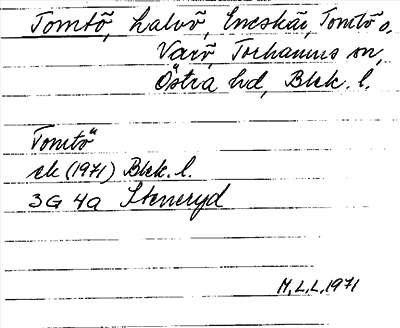 Tomtö, Halvö, Eneskär, Tomtö o.
Varö, Torhamns sn,
Östra hd, Blek. l.
Tomtö
ek (1971) Blek. l.
3G 4a Steneryd
M.L.L. 1971